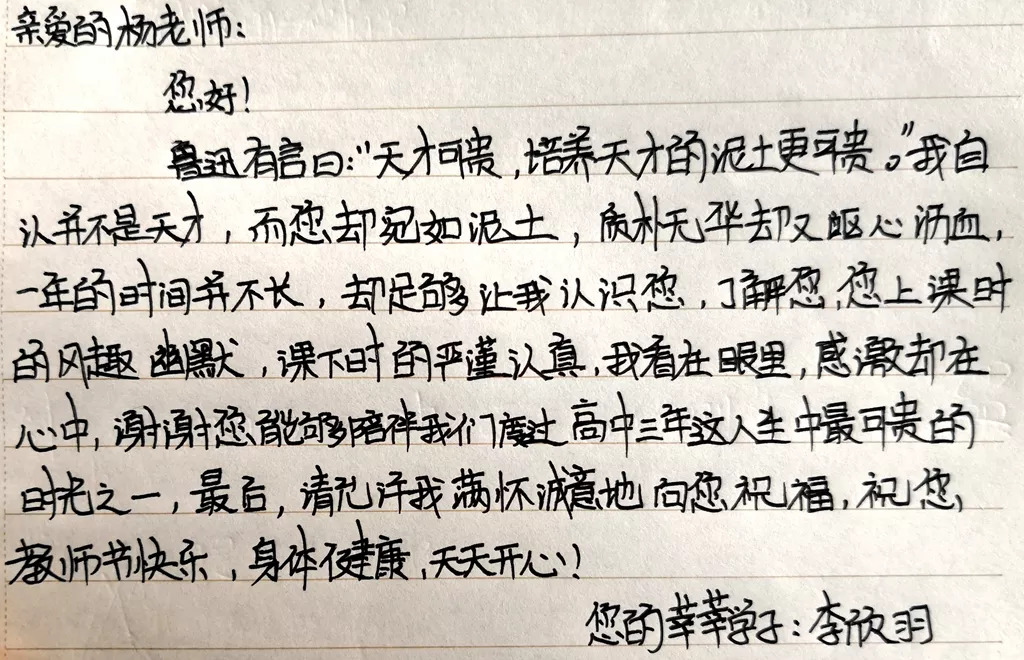 亲爱的杨老师：
您好！
鲁迅有言曰："天才可贵，培养天才的泥土更可贵。"我自
认并不是天才，而您却宛如泥土，质朴无华却又呕心沥血，
一年的时间并不长，却足够让我认识您，了解您，您上课时
的风趣幽默，课下时的严谨认真，我看在眼里，感激却在
心中，谢谢您能够陪伴我们度过高中三年这人生中最可贵的
时光之一，最后，请允许我满怀诚意地向您祝福，祝您，
教师节快乐，身体健康，天天开心！
您的莘莘学子：李欣羽